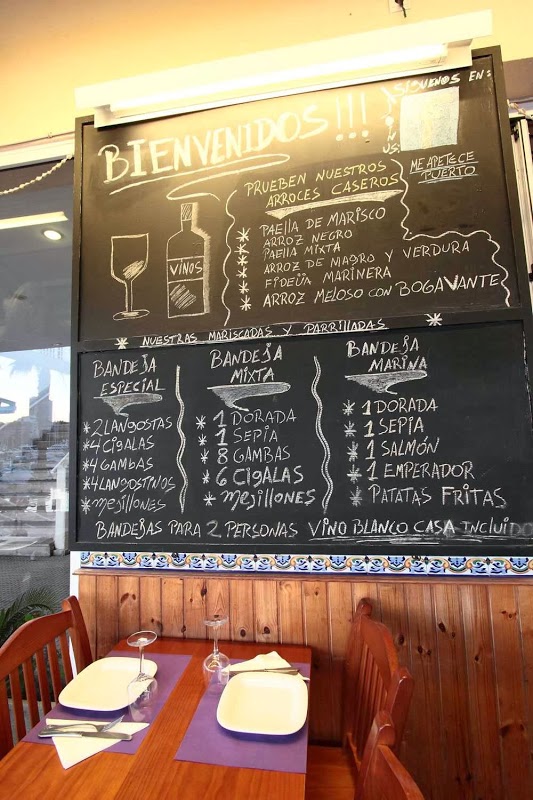 BIENVENIDOS!!!
SIGUENOS EN:
ME APETECE
PUERTO
PRUEBEN NUESTROS
ARROCES CASEROS
VINOS
* PAELLA DE MARISCO
* ARROZ NEGRO
* PAELLA MIXTA
* ARROZ DE MAGRO Y VERDURA
* FIDEUÀ MARINERA
* ARROZ MELOSO CON BOGAVANTE
* NUESTRAS MARISCADAS Y PARRILLADAS *
BANDEJA
ESPECIAL
* 2 LANGOSTAS
* 4 CIGALAS
* 4 GAMBAS
* 4 LANGOSTINOS
* MEJILLONES
BANDEJA
MIXTA
* 1 DORADA
* 1 SEPIA
* 8 GAMBAS
* 6 CIGALAS
* MEJILLONES
BANDEJA
MARINA
* 1 DORADA
* 1 SEPIA
* 1 SALMÓN
* 1 EMPERADOR
* PATATAS FRITAS
BANDEJAS PARA 2 PERSONAS VINO BLANCO CASA INCLUIDO